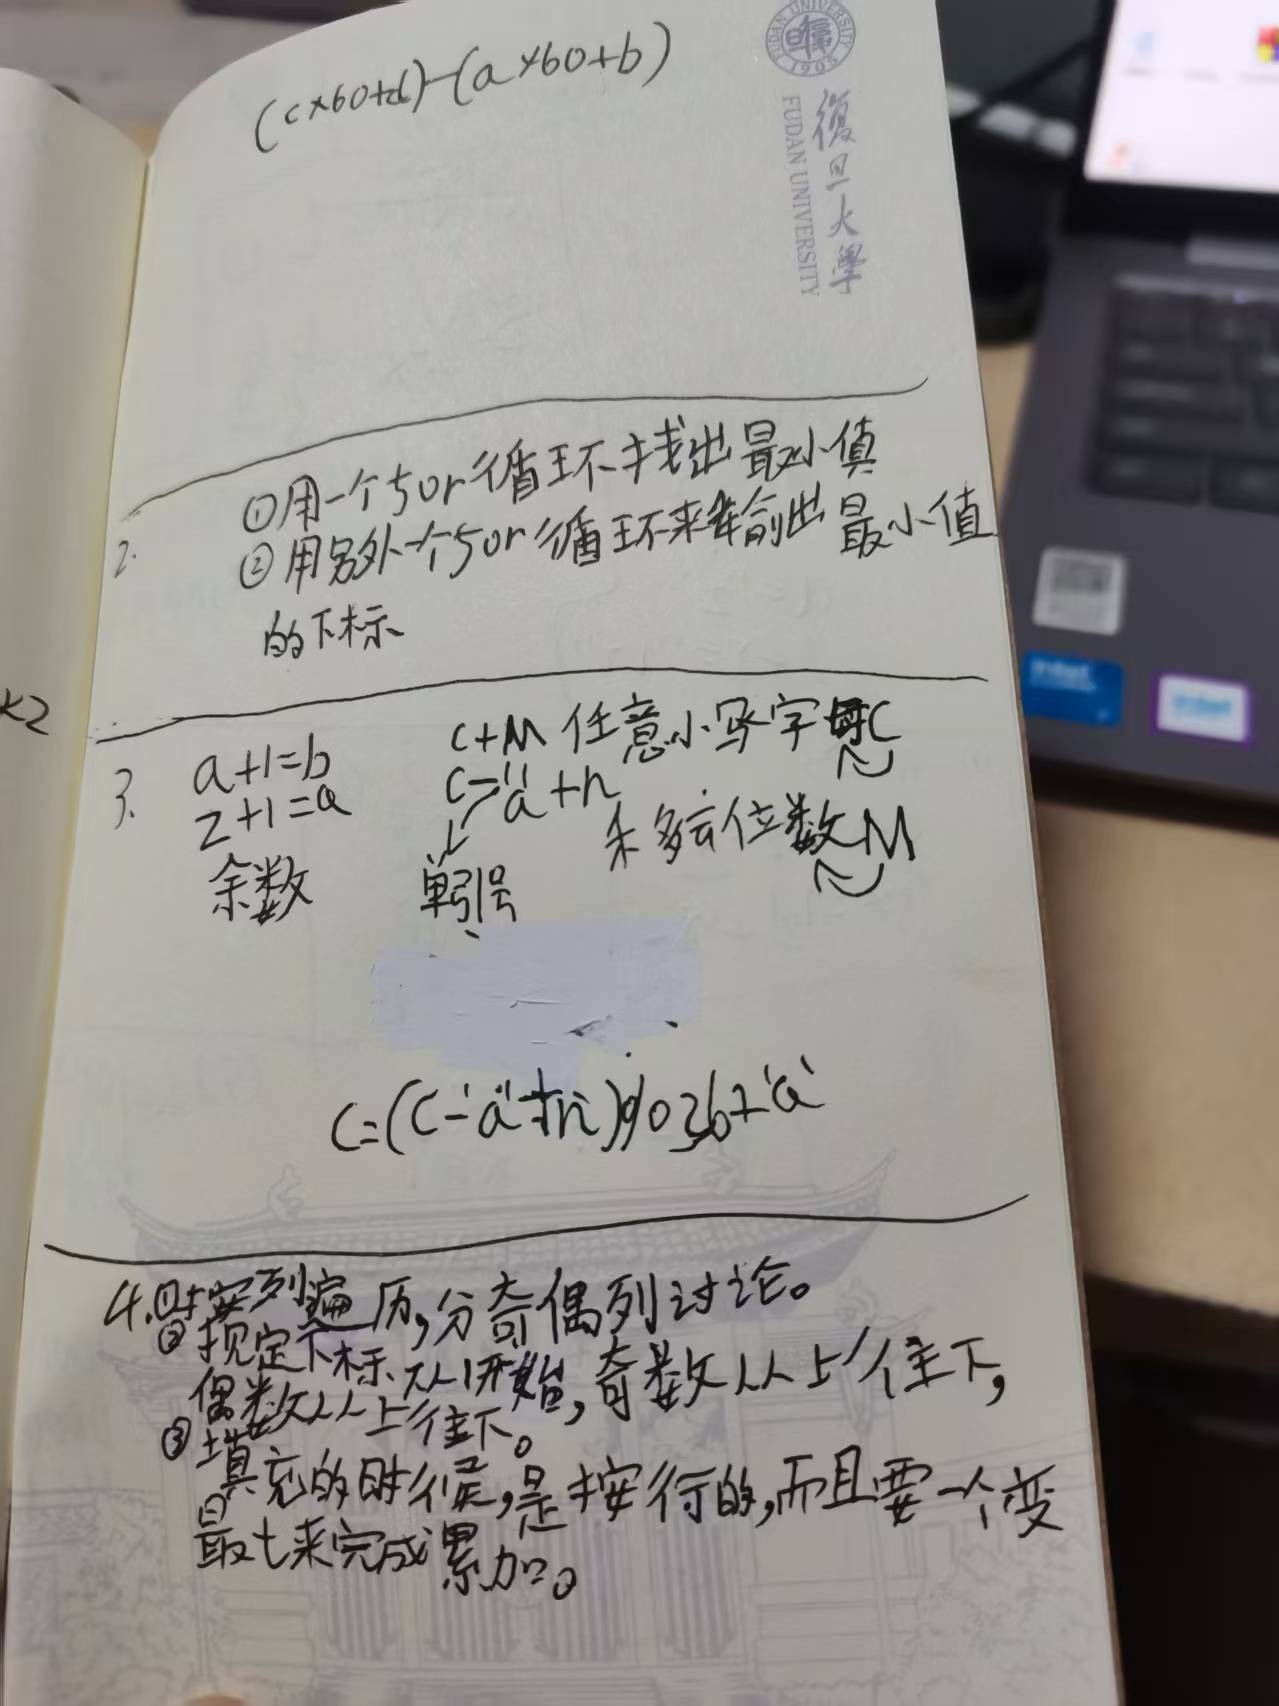 (c×60+d)-(a×60+b)
FUDAN UNIVERSITY
1905
復旦大學
FUDAN UNIVERSITY
①用一个for循环找出最小值
2. ②用另外一个for循环来输出最小值
的下标
×2
3. a+1=b
z+1=a
余数
c+M 任意小写字母C
c-'a'+n
单引号
未多云位数M
c=(c-'a'+n)%26+'a'
4.①按列遍历,分奇偶列讨论。
②规定下标从1开始,奇数从上往下,
偶数从上往下。
③填充的时候,是按行的,而且要一个变
最t来完成累加。
intel
intel